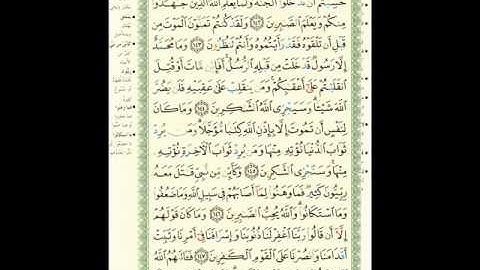 حسبتم أن تدخلوا الجنة ولما يعلم الله الذين جهدوا
منكم ويعلم الصبرين ١٤٢ ولقد كنتم تمنون الموت من
قبل أن تلقوه فقد رأيتموه وأنتم تنظرون ١٤٣ وما محمد
إلا رسول قد خلت من قبله الرسل أفإين مات أو قتل
انقلبتم على أعقبكم ومن ينقلب على عقبيه فلن يضر
الله شيئا وسيجزى الله الشكرين ١٤٤ وما كان
لنفس أن تموت إلا بإذن الله كتبا مؤجلا ومن يرد
ثواب الدنيا نؤته منها ومن يرد ثواب الآخرة نؤته
منها وسنجزى الشكرين ١٤٥ وكأين من نبى قتل معه
ربيون كثير فما وهنوا لما أصابهم فى سبيل الله وما ضعفوا
وما استكانوا والله يحب الصبرين ١٤٦ وما كان قولهم
إلا أن قالوا ربنا اغفر لنا ذنوبنا وإسرافنا فى أمرنا وثبت
أقدامنا وانصرنا على القوم الكفرين ١٤٧ فـاتىهم الله